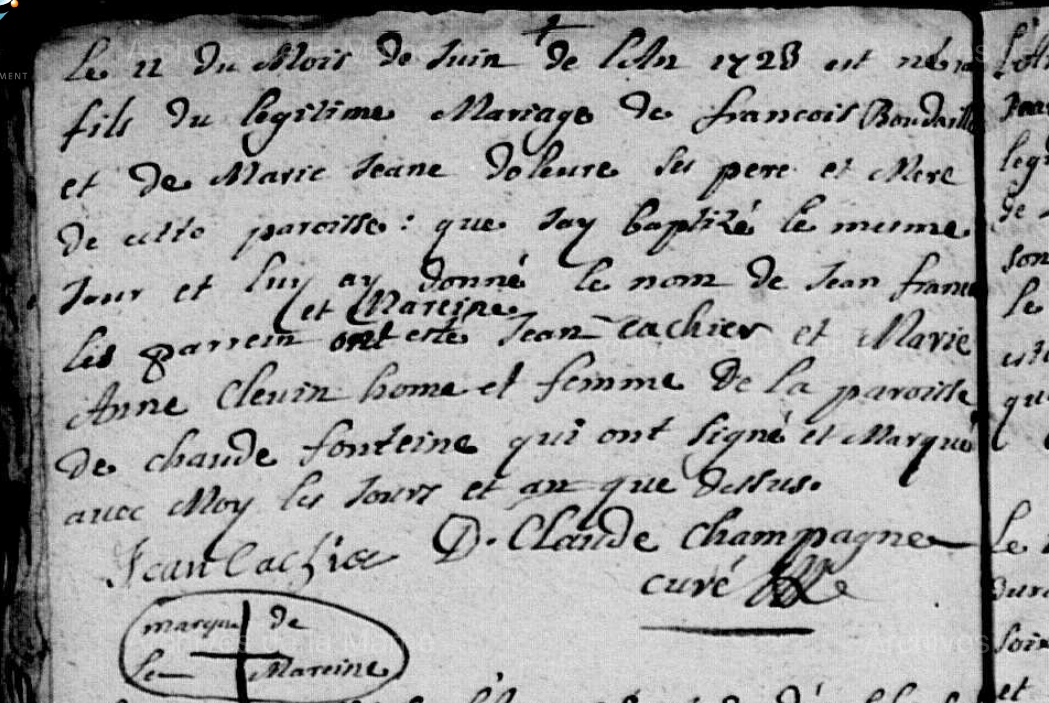 Le 22 du Mois de Juin de l'An 1728 est né un
fils du legitime Mariage de francois Boudaille
et de Marie Jeane Doleure ses pere et Mere
de cette paroisse : que Jay baptizé le mesme
Jour et luy ay donné le nom de Jean francois
et Mareine
les parrein ont esté Jean Cachier et Marie
Anne Clevin home et femme de la paroisse
de chaude fonteine qui ont signé et Marqué
avec Moy les Jours et an que dessus.
Jean Cachier D. Claude Champagne
curé
marque de
la Mareine